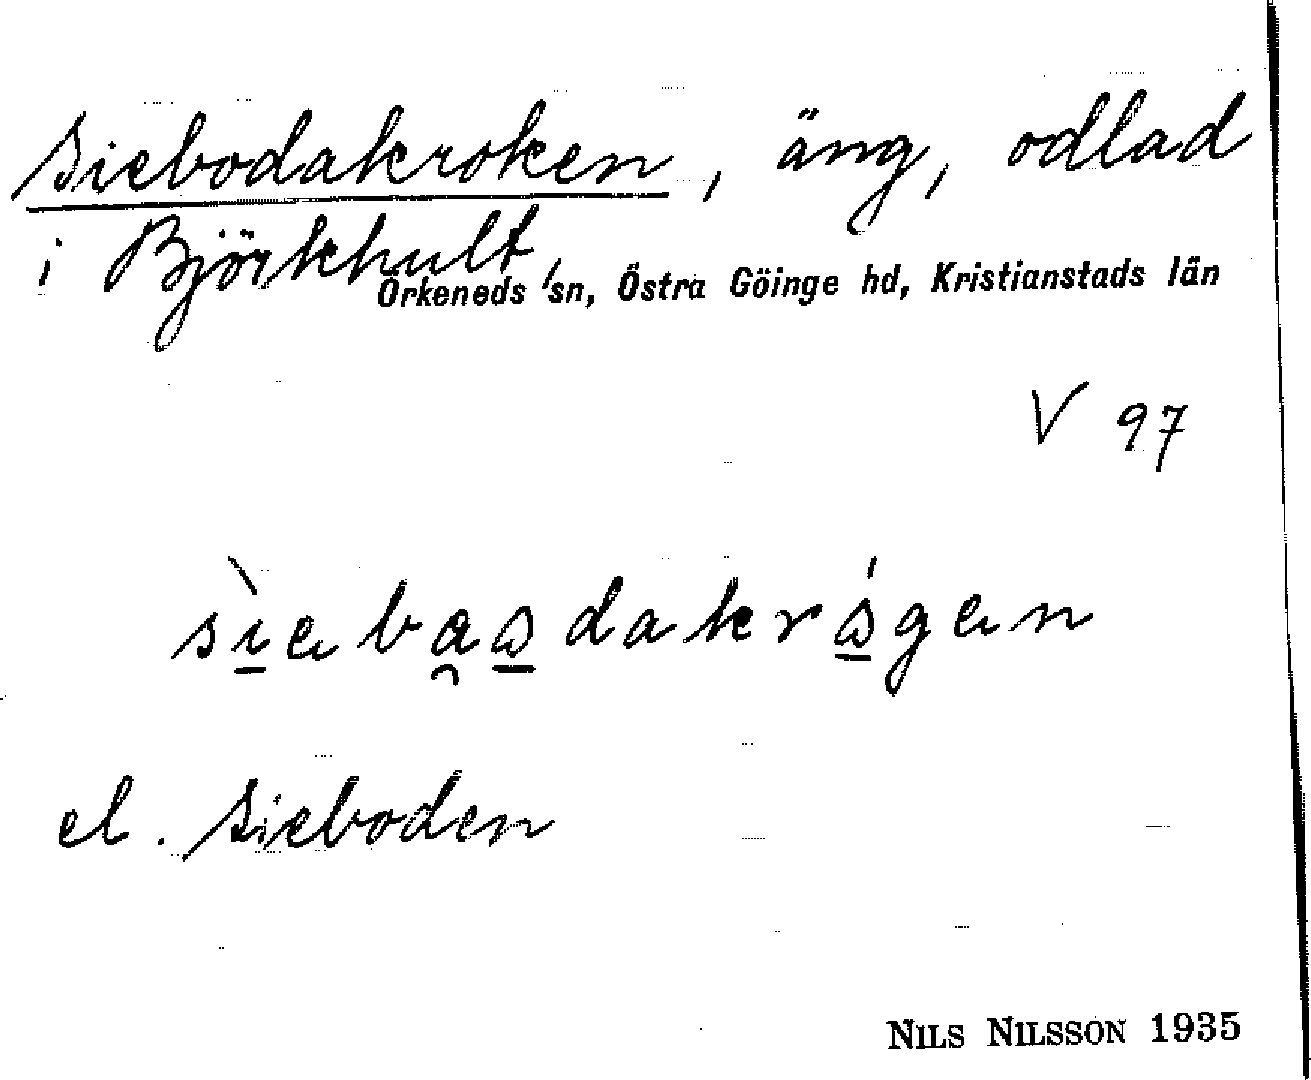 Siebodakroken, äng, odlad
i Björkhult,
Örkeneds sn, Östra Göinge hd, Kristianstads län
V 97
el. Sieboden
NILS NILSSON 1935